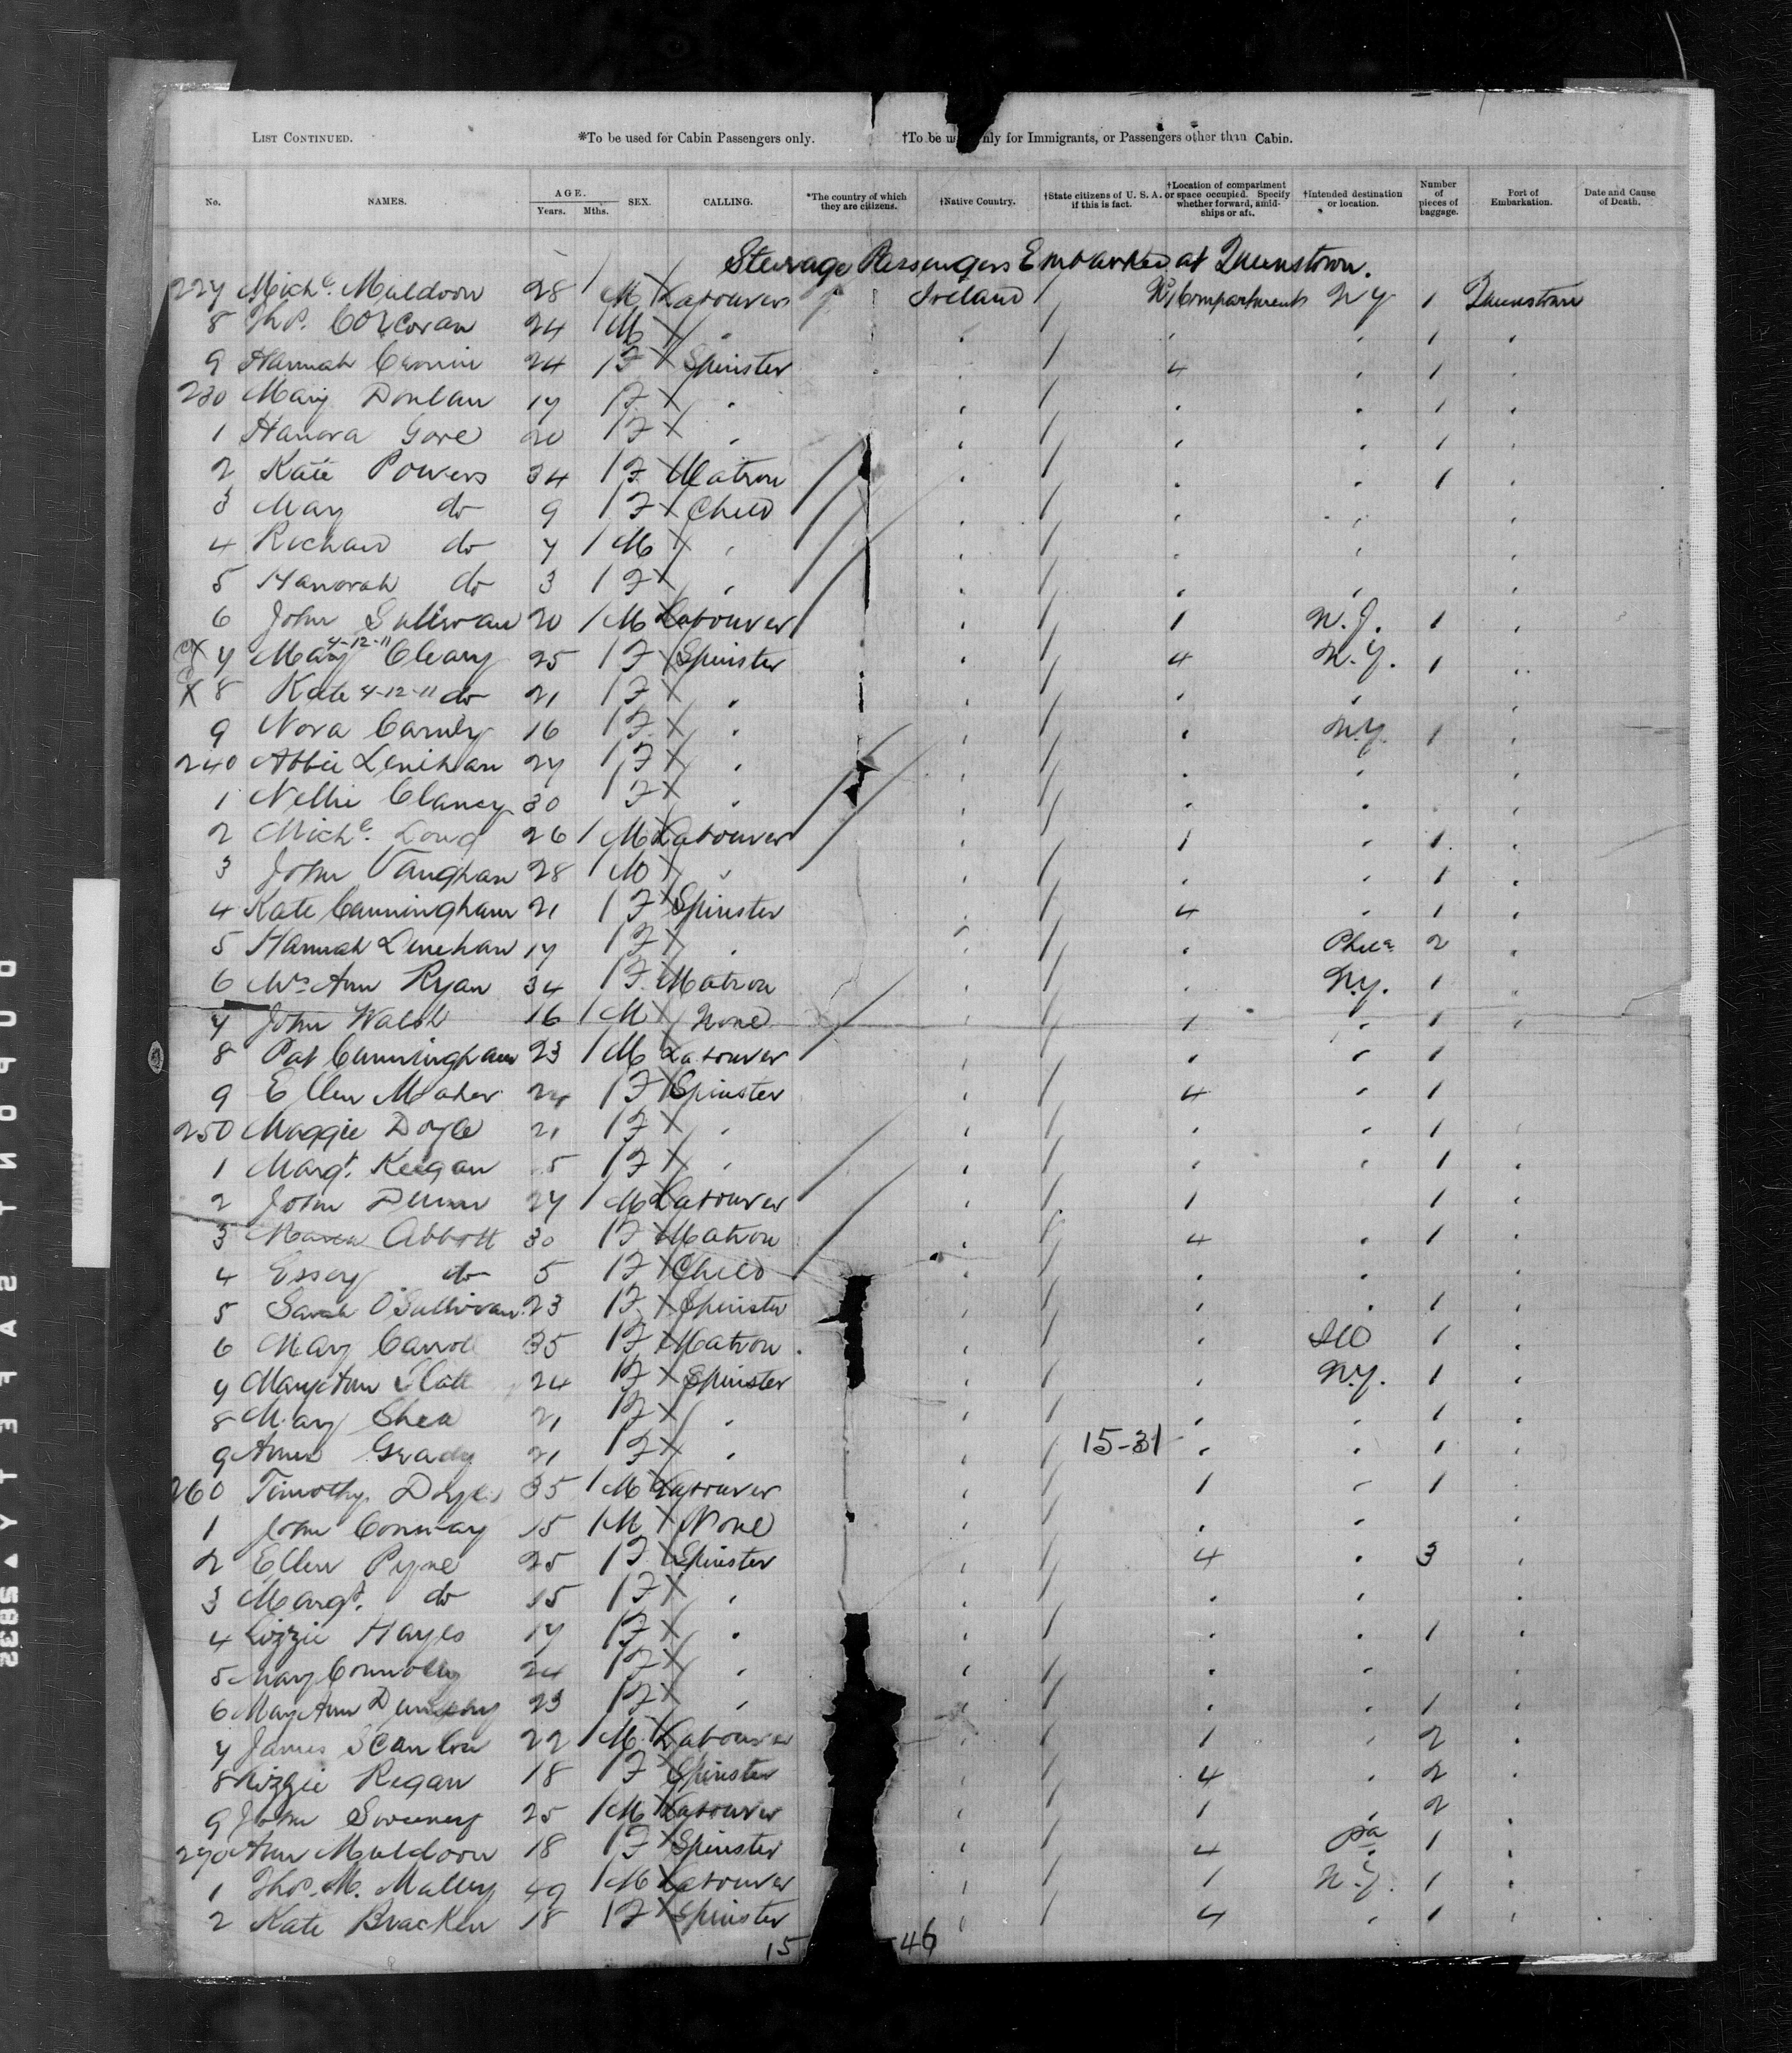 LIST CONTINUED. *To be used for Cabin Passengers only. †To be u nly for Immigrants, or Passengers other than Cabin.
No. NAMES. AGE. Years. Mths. SEX. CALLING. *The country of which they are citizens. †Native Country. †State citizens of U. S. A. if this is fact. †Location of compartment or space occupied. Specify whether forward, amidships or aft. †Intended destination or location. Number of pieces of baggage. Port of Embarkation. Date and Cause of Death.
Steerage Passengers Embarked at Queenstown.
227 Michl. Muldoon 28 / M Labourer Ireland / No 1 Compartment N Y 1 Queenstown
8 Thos. Corcoran 24 / M " " / " " 1 "
9 Hannah Cronin 24 / F Spinster " / 4 " 1 "
230 Mary Donlan 17 / F " " / " " 1 "
1 Hanora Gore 20 / F " " / " " 1 "
2 Kate Powers 34 / F Matron " / " " 1 "
3 Mary do 9 / F Child " / " " "
4 Richard do 7 / M " " / " " "
5 Hanorah do 3 / F " " / " " "
6 John Sullivan 20 / M Labourer " / 1 N. J. 1 "
7 Mary 4-12-11 Cleary 25 / F Spinster " / 4 N. Y. 1 "
X 8 Kate 4-12-11 do 21 / F " " / " " "
9 Nora 16 / F " " / " N.Y. 1 "
240 Abbie Lenihan 27 / F " " / " " "
1 Nellie Clancy 30 / F " " / " " "
2 Michl. 26 / M Labourer " / 1 " 1 "
3 John Vaughan 28 / M " " / " " 1 "
4 Kate Cunningham 21 / F Spinster " / 4 " 1 "
5 Hannah Linehan 17 / F " " / " Phila 2 "
6 Mrs Ann Ryan 34 / F Matron " / " N.Y. 1 "
7 John Walsh 16 / M None " / 1 " 1 "
8 Pat Cunningham 23 / M Labourer " / " " 1
9 Ellen Maher 24 / F Spinster " / 4 " 1
250 Maggie Doyle 21 / F " " / " " 1 "
1 Margt. Keegan 5 / F " " / " " 1 "
2 John Dunn 27 / M Labourer " / 1 1 "
3 Abbott 30 / F Matron " / 4 " 1 "
4 Essey do 5 / F Child " / " " "
5 Sarah O'Sullivan 23 / F Spinster " / " " 1 "
6 Mary Carroll 35 / F Matron " / " Ill 1 "
7 Mary Ann 24 / F Spinster " / " N.Y. 1 "
8 Mary Shea 21 / F " " / " " 1 "
9 Annie Grady 21 / F " " / 15-31 " " 1 "
260 Timothy Doyle 35 / M Labourer " / 1 " 1 "
1 John Conway 15 / M None " / " " "
2 Ellen Pyne 25 / F Spinster " / 4 " 3 "
3 Margt. do 15 / F " " / " " "
4 Lizzie Hayes 17 / F " " / " " 1 "
5 Mary Connolly 24 / F " " / " " "
6 Mary Ann Dunphy 23 / F " " / " " 1 "
7 James Scanlon 22 / M Labourer " / 1 " 2 "
8 Lizzie Regan 18 / F Spinster " / 4 " 2 "
9 John Sweeney 25 / M Labourer " / 1 " 2
270 Ann Muldoon 18 / F Spinster " / 4 Pa 1 "
1 Thos. M. Malley 49 / M Labourer " / 1 N.Y. 1 "
2 Kate Bracken 18 / F Spinster " / 4 " 1 "
15 -46